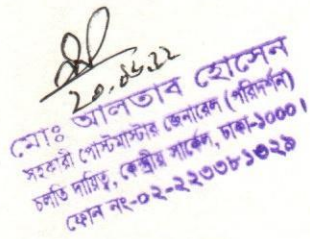 ২০.১৬.২২
মোঃ আলতাব হোসেন
সহকারী পোস্টমাস্টার জেনারেল (পরিদর্শন)
চলতি দায়িত্ব, কেন্দ্রীয় সার্কেল, ঢাকা-১০০০।
ফোন নং-০২-২২৩৩৮১৩২৯